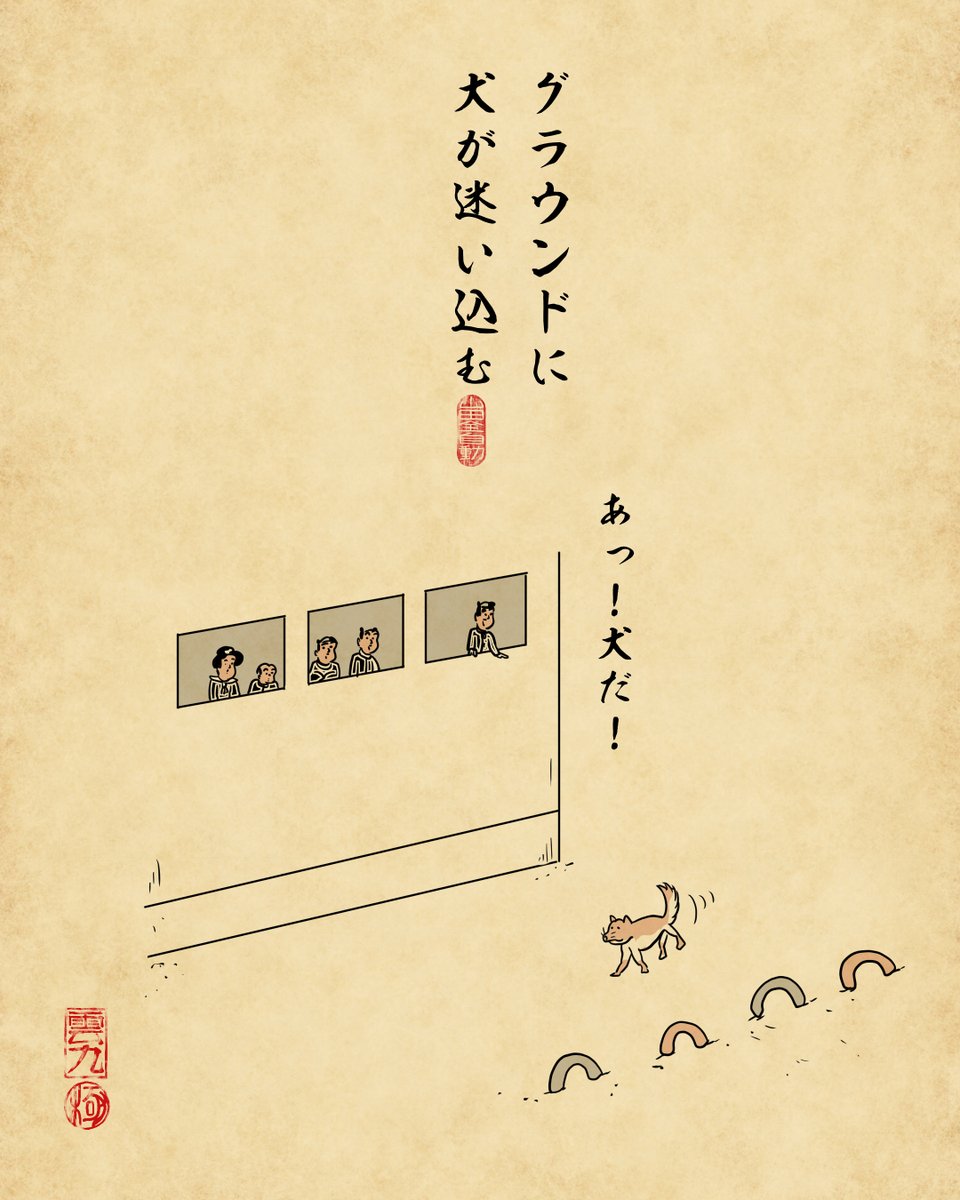 グラウンドに
犬が迷い込む
あっ！犬だ！